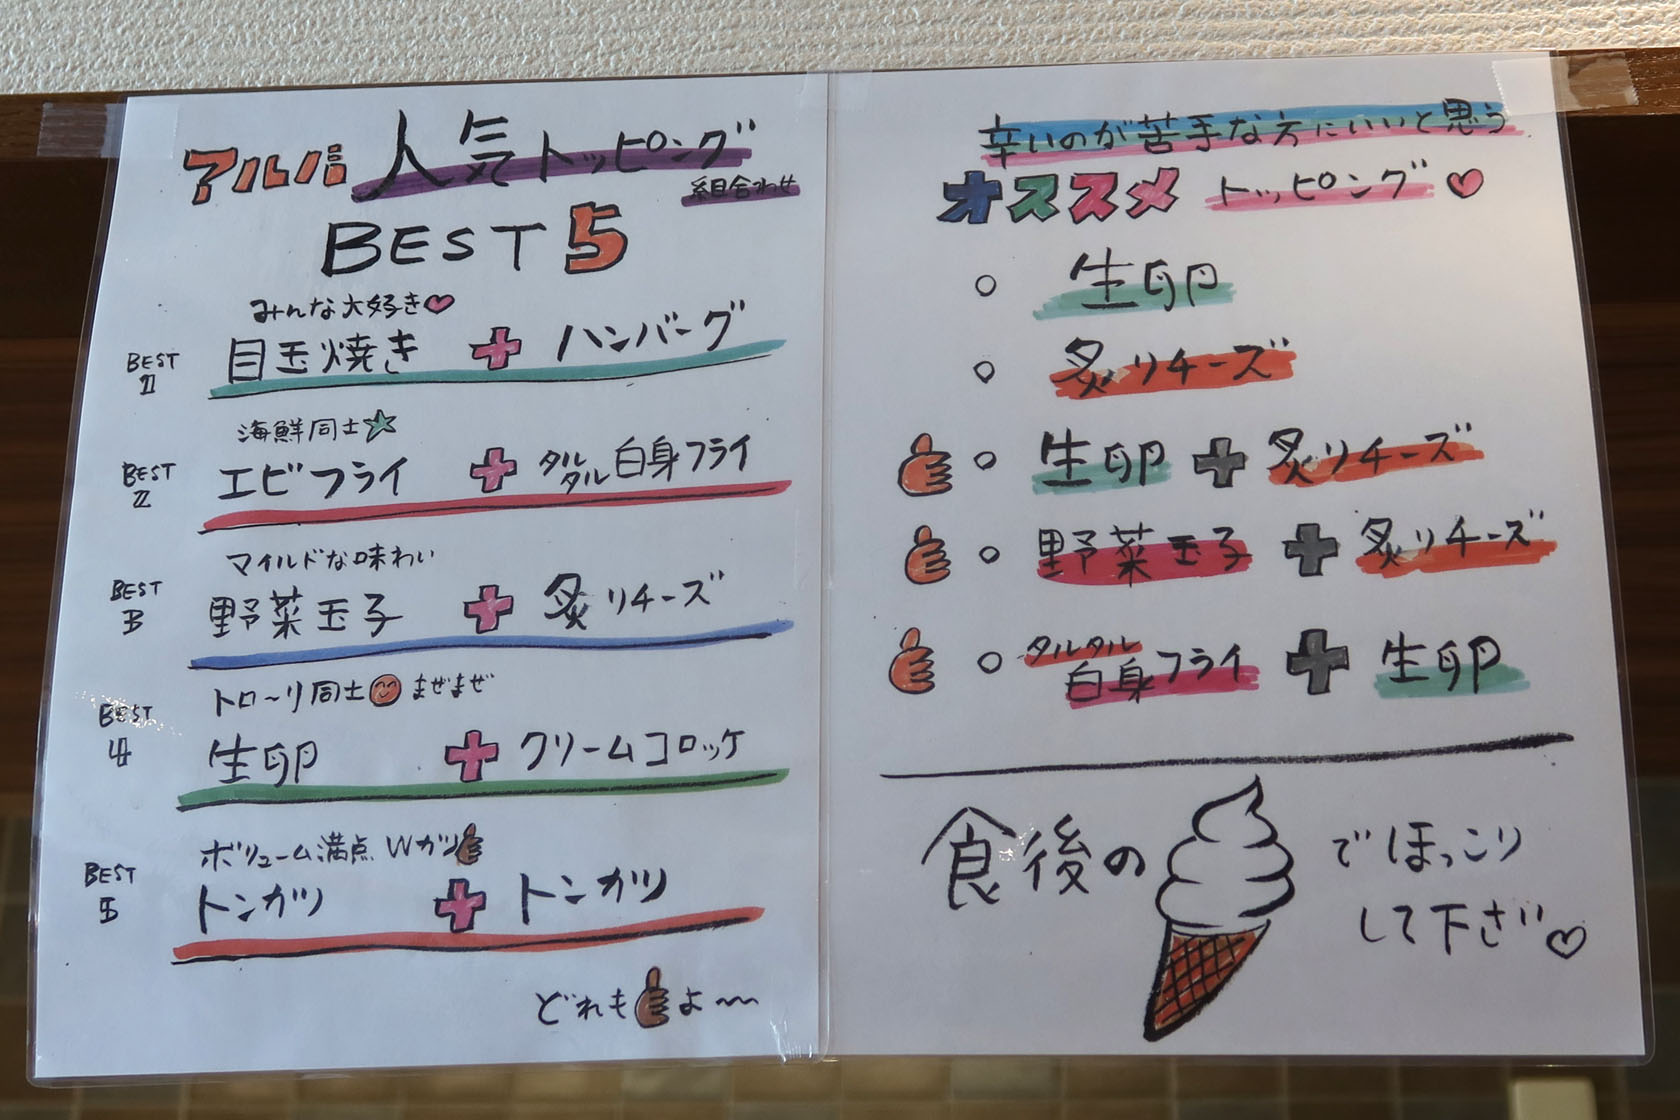 アルバ 人気トッピング
組合わせ
BEST 5
みんな大好き
BEST 1 目玉焼き + ハンバーグ
海鮮同士
BEST 2 エビフライ + タルタル白身フライ
マイルドな味わい
BEST 3 野菜玉子 + 炙りチーズ
トロ〜リ同士 まぜまぜ
BEST 4 生卵 + クリームコロッケ
ボリューム満点 Wカツ
BEST 5 トンカツ + トンカツ
どれも よ〜
辛いのが苦手な方にいいと思う
オススメ トッピング
生卵
炙りチーズ
生卵 + 炙りチーズ
野菜玉子 + 炙りチーズ
タルタル白身フライ + 生卵
食後の でほっこり
して下さい